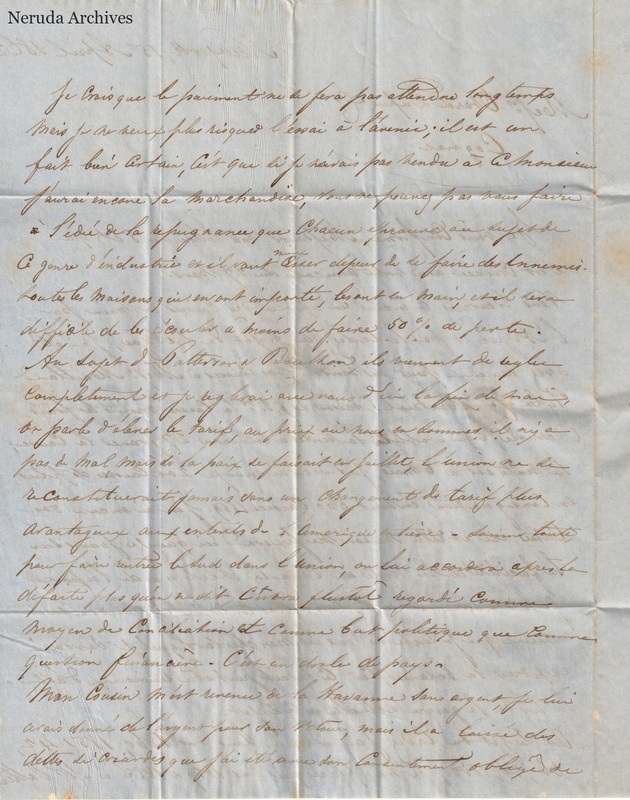 Neruda Archives
Je crois que le paiement ne se fera pas attendre longtemps
Mais je ne veux plus risquer l'essai à l'avenir, il est un
fait bien certain, c'est que si je n'avais pas vendu à ce Monsieur
j'aurai encore la marchandise, vous ne pouvez pas vous faire
à l'idée de la repugnance que chacun éprouve au sujet de
Ce genre d'industrie et il vaut mieux cesser de se faire des Ennemis.
toutes les maisons qui en ont importé, les ont en main, et il sera
difficile de les écouler à moins de faire 50% de perte.
Au sujet de ils viennent de regler
completement et je reglerai avec vous d'ici la fin de mai,
on parle d'élever le tarif, au prix où nous en sommes il n'y a
pas de mal mais si la paix se faisait en juillet, l'union ne se
reconstituerait jamais sans un changement de tarif plus
avantageux aux interêts de l'amerique entière - somme toute
pour faire rentrer le Sud dans l'Union, on lui accordera après sa
défaite plus qu'on ne dit, Ce sera plustot regardé comme
moyen de Conciliation et comme but politique que comme
question financière. C'est un drole de pays.
Mon Cousin m'est revenu de la Havanne sans argent, je lui
avais donné de l'argent pour son retour, mais il a laissé des
dettes criardes que j'ai été avec son consentement obligé de